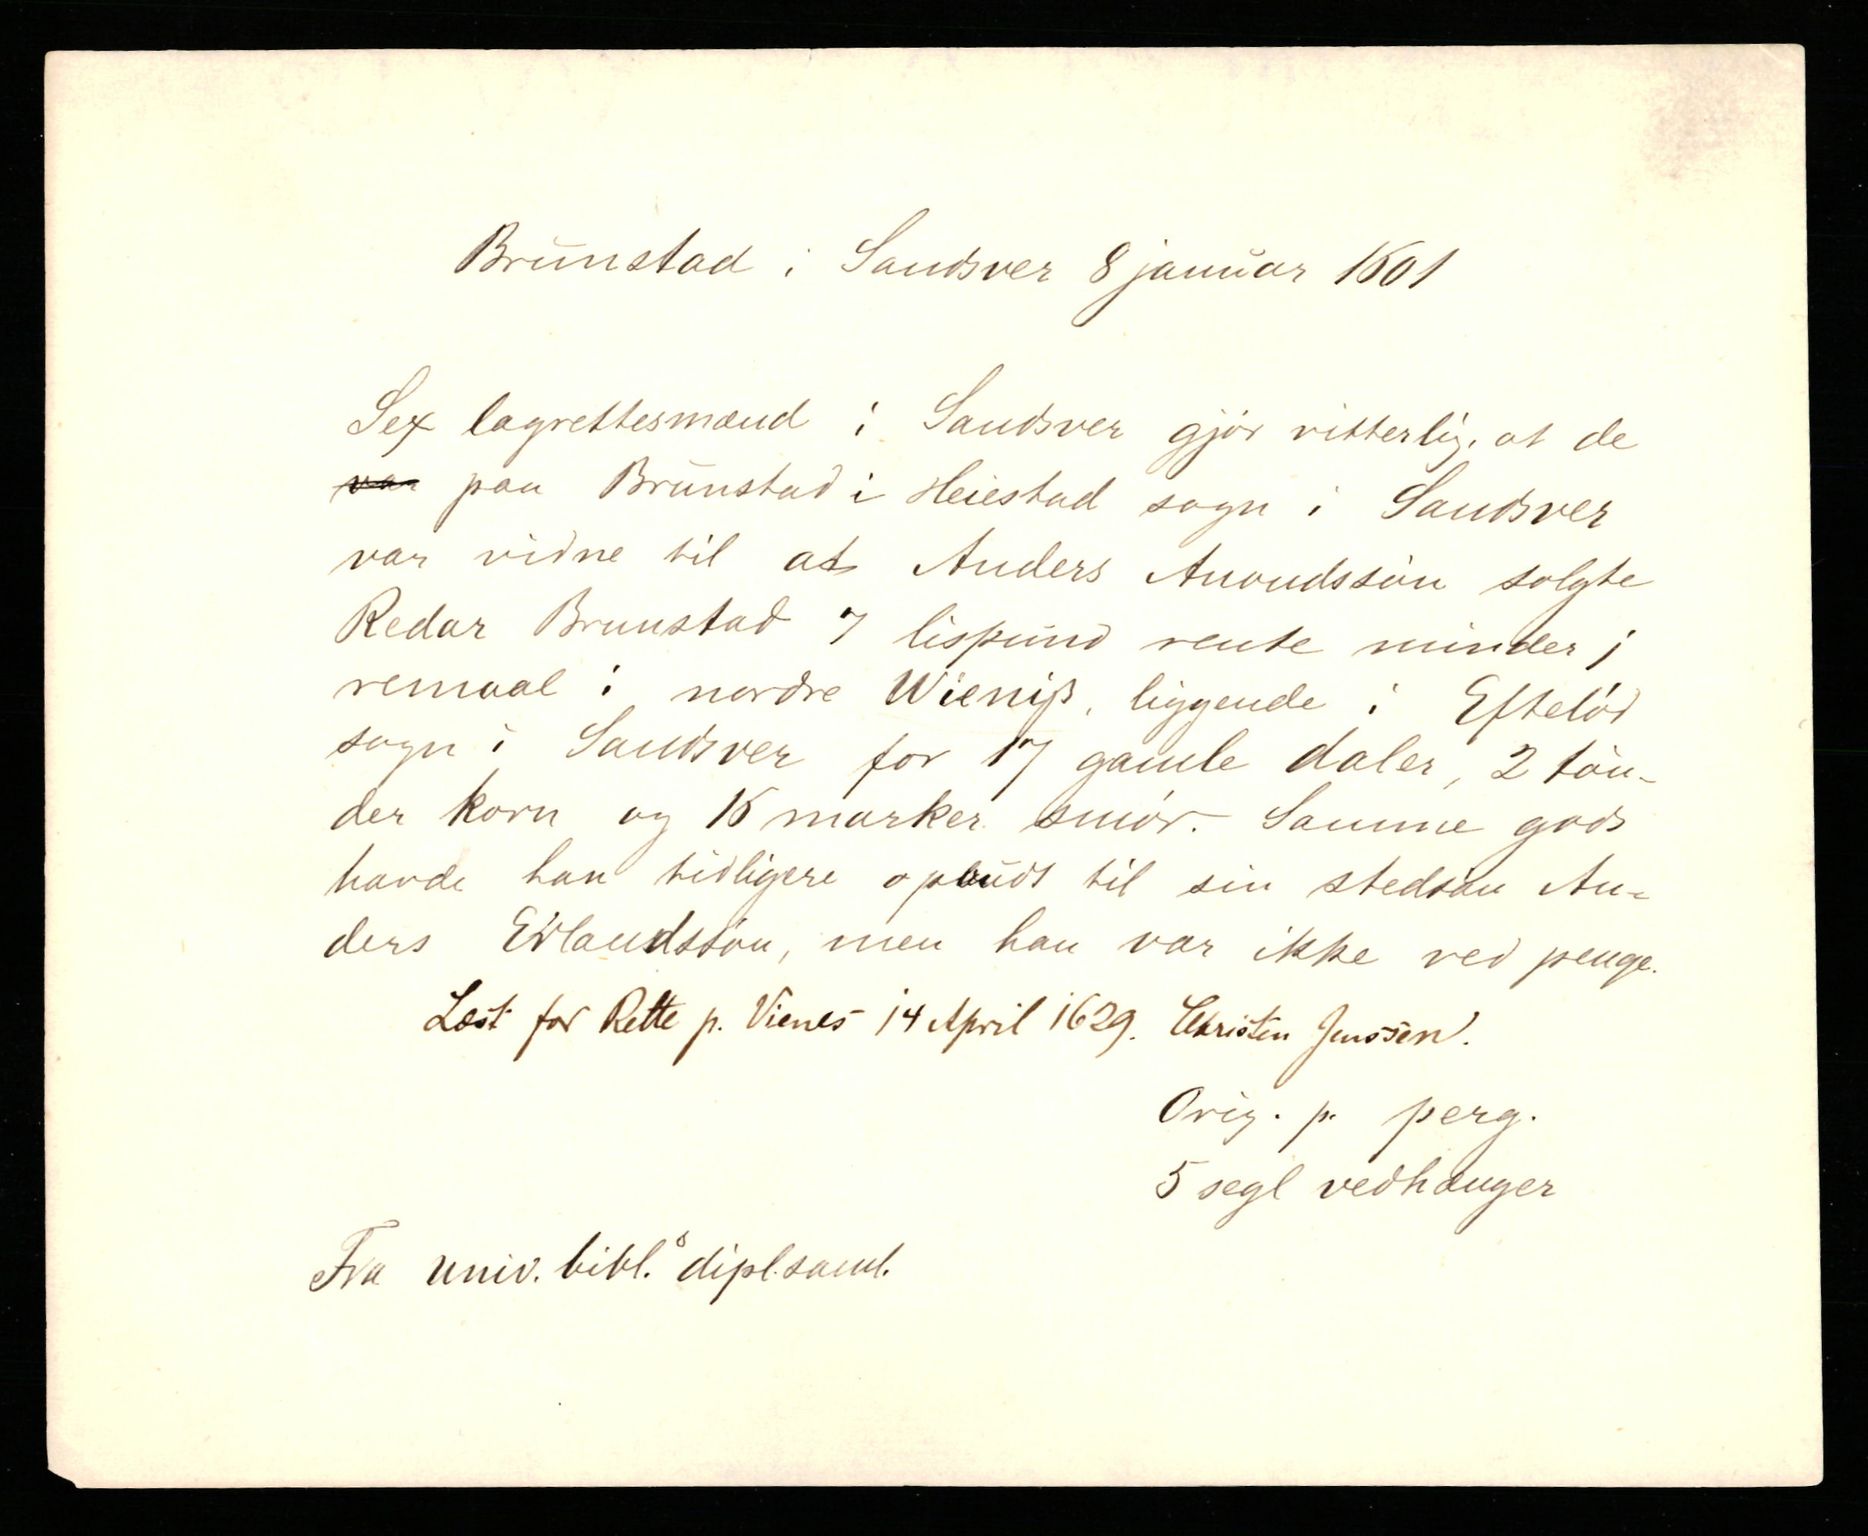 Brunstad i Sandsver 8 januar 1601
Sex lagrettesmænd i Sandsver gjör vitterlig, at de
~~var~~ paa Brunstad i Heiestad sogn i Sandsver
var vidne til at Anders Anondssön solgte
Redar Brunstad 7 lispund rente minder j
remaal i nordre Wieniß, liggende i Eftelød
sogn i Sandsver for 17 gamle daler, 2 tön-
der korn og 16 marker smör. Samme gods
havde han tidligere opbudt til sin stedsön An-
ders Erlandssön, men han var ikke ved penge.
Læst for Rette p. Vienes 14 April 1629. Christen Jenssen.
Orig. p. perg.
5 segl vedhænger
Fra univ. bibl.s dipl.saml.